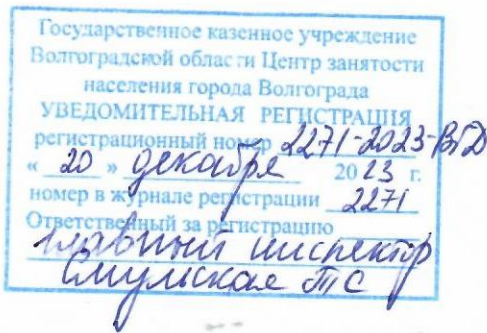 Государственное казенное учреждение
Волгоградской области Центр занятости
населения города Волгограда
УВЕДОМИТЕЛЬНАЯ РЕГИСТРАЦИЯ
регистрационный номер 2271-2023-ВГД
« 20 » декабря 2023 г.
номер в журнале регистрации 2271
Ответственный за регистрацию
главный инспектор
Смульская ТС